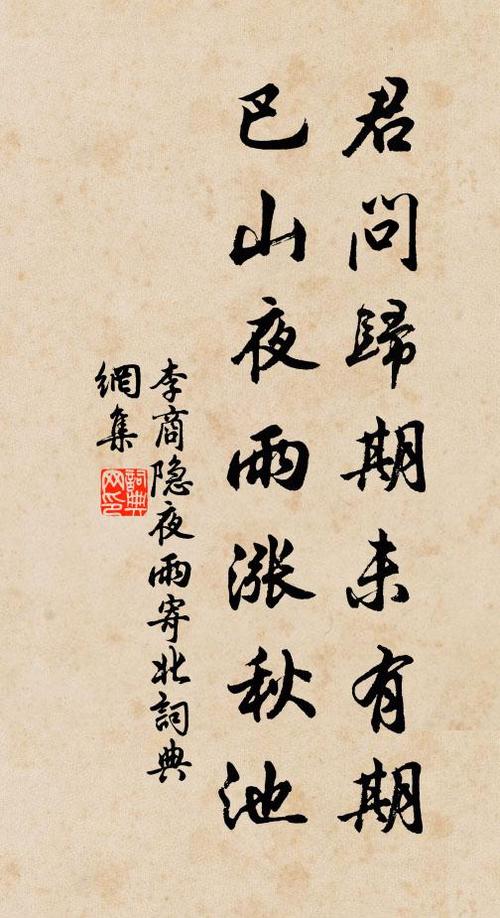 君问歸期未有期
巴山夜雨漲秋池
李商隐夜雨寄北詞典
網集
詞典網印